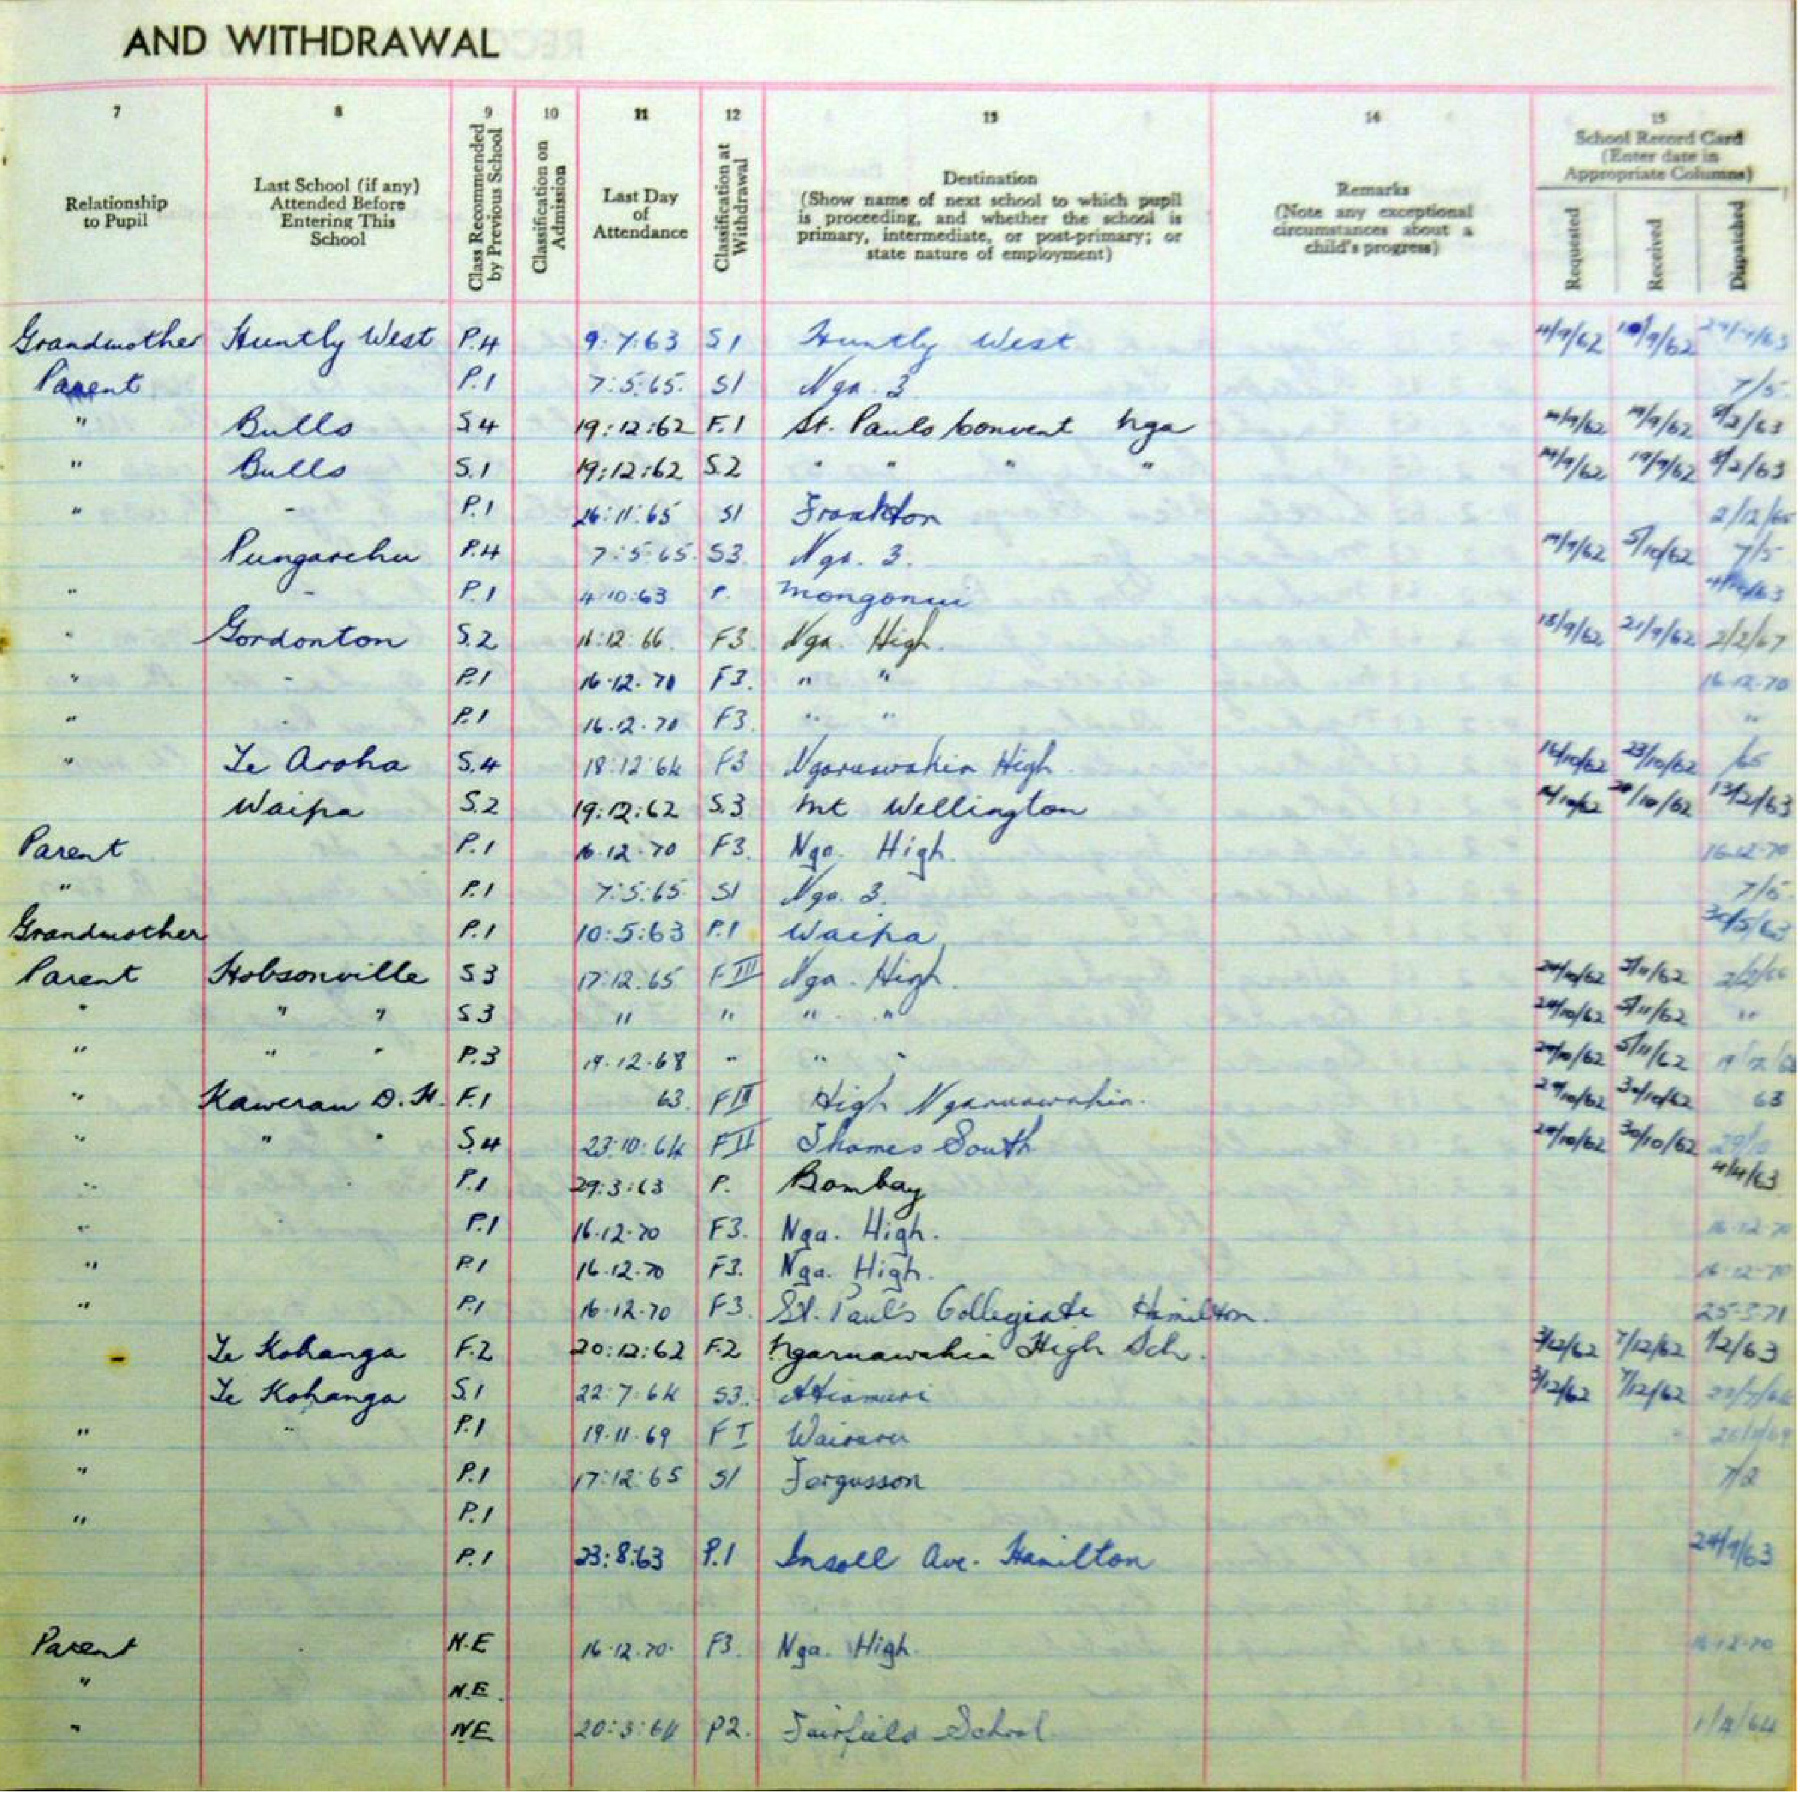 AND WITHDRAWAL
7 8 9 10 11 12 13 14 15
Relationship to Pupil
Last School (if any) Attended Before Entering This School
Class Recommended by Previous School
Classification on Admission
Last Day of Attendance
Classification at Withdrawal
Destination
(Show name of next school to which pupil is proceeding, and whether the school is primary, intermediate, or post-primary; or state nature of employment)
Remarks
(Note any exceptional circumstances about a child's progress)
School Record Card
(Enter date in Appropriate Columns)
Requested Received Dispatched
Grandmother Huntly West P.4 9:7:63 S1 Huntly West 4/9/62 10/9/62
Parent P.1 7:5:65. S1 Nga. 3 7/5.
" Bulls S4 19:12:62 F.1 St. Pauls Convent Nga 19/9/62 5/2/63
" Bulls S.1 19:12:62 S.2 " " " " 19/9/62 5/2/63
" - P.1 26:11:65 S1 Frankton 2/12/65
Pungarehu P.4 7:5:65. S3. Nga. 3. 5/10/62 7/5
" - P.1 4:10:63 P. Mongonui
" Gordonton S.2 16:12:66. F3. Nga. High. 18/9/62 21/9/62 2/2/67
" - P.1 16.12.70 F3. " " 16.12.70
" P.1 16.12.70 F3. " " "
" Te Aroha S.4 18:12:64 F3 Ngaruawahia High. 16/10/62 23/10/62 /65
Waipa S.2 19:12:62 S.3 Mt Wellington 13/2/63
Parent P.1 16.12.70 F3. Nga. High. 16.12.70
" P.1 7:5:65 S1 Nga. 3. 7/5.
Grandmother P.1 10:5:63 P.1 Waipa 30/5/63
Parent Hobsonville S3 17:12:65 F III Nga. High. 29/10/62 5/11/62 2/2/66
" " " S3 " " " " 29/10/62 5/11/62 "
" " " P.3 19.12.68 " " " 29/10/62 5/11/62
" Kawerau D.H. F.1 63. F III High Ngaruawahia. 29/10/62 30/10/62 63
" " " S.4 23:10:64 F II Thames South 29/10/62 30/10/62
" P.1 29:3:63 P. Bombay 4/4/63
" P.1 16.12.70 F3. Nga. High. 16.12.70
" P.1 16.12.70 F3. Nga. High. 16.12.70
" P.1 16.12.70 F3. St. Paul's Collegiate Hamilton. 25.3.71
- Te Kohanga F.2 20:12:62 F.2 Ngaruawahia High Sch. 3/12/62 7/12/62 1/2/63
Te Kohanga S.1 22:7:64 S3. Atiamuri 3/12/62 7/12/62 22/7/64
" P.1 19.11.69 F I
" P.1 17:12:65 S1 Fergusson 7/2
" P.1
P.1 23:8:63 P.1 Insoll Ave. Hamilton 24/9/63
Parent N.E 16.12.70. F3. Nga. High. 16.12.70
" N.E.
" NE 20:3:64 P2. Fairfield School 1/4/64